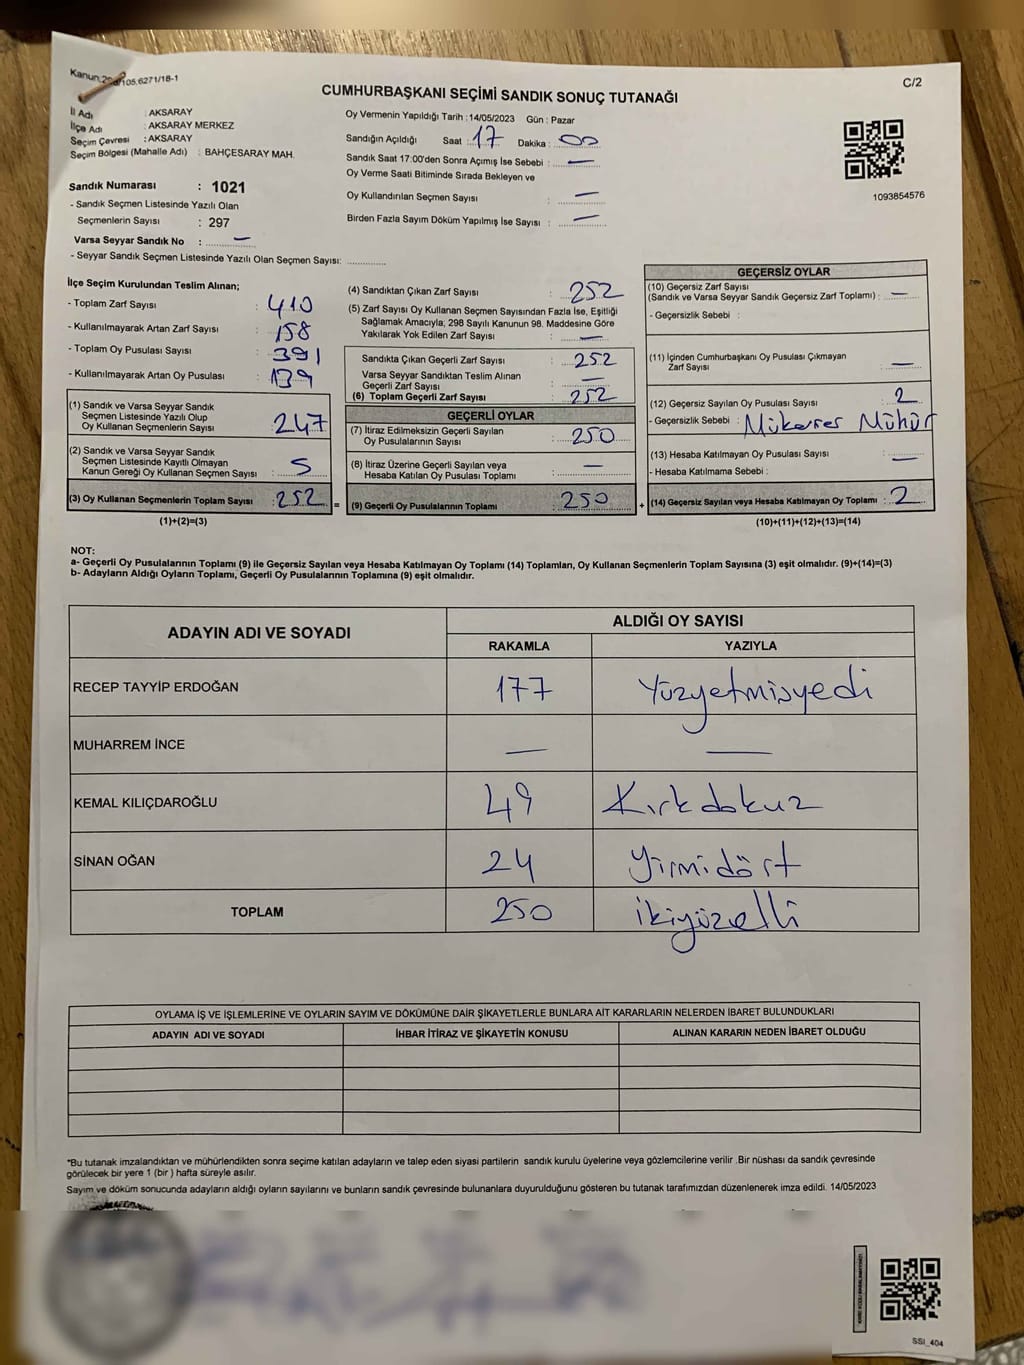 Kanun:298/105,6271/18-1
C/2
CUMHURBAŞKANI SEÇİMİ SANDIK SONUÇ TUTANAĞI
İl Adı : AKSARAY
İlçe Adı : AKSARAY MERKEZ
Seçim Çevresi : AKSARAY
Seçim Bölgesi (Mahalle Adı) : BAHÇESARAY MAH.
Sandık Numarası : 1021
- Sandık Seçmen Listesinde Yazılı Olan
Seçmenlerin Sayısı : 297
Varsa Seyyar Sandık No : —
- Seyyar Sandık Seçmen Listesinde Yazılı Olan Seçmen Sayısı:
Oy Vermenin Yapıldığı Tarih :14/05/2023 Gün : Pazar
Sandığın Açıldığı Saat : 17 Dakika : 00
Sandık Saat 17:00'den Sonra Açımış İse Sebebi : —
Oy Verme Saati Bitiminde Sırada Bekleyen ve
Oy Kullandırılan Seçmen Sayısı : —
Birden Fazla Sayım Döküm Yapılmış İse Sayısı : —
1093854576
İlçe Seçim Kurulundan Teslim Alınan;
- Toplam Zarf Sayısı : 410
- Kullanılmayarak Artan Zarf Sayısı : 158
- Toplam Oy Pusulası Sayısı : 391
- Kullanılmayarak Artan Oy Pusulası : 139
(1) Sandık ve Varsa Seyyar Sandık
Seçmen Listesinde Yazılı Olup
Oy Kullanan Seçmenlerin Sayısı : 247
(2) Sandık ve Varsa Seyyar Sandık
Seçmen Listesinde Kayıtlı Olmayan
Kanun Gereği Oy Kullanan Seçmen Sayısı : 5
(3) Oy Kullanan Seçmenlerin Toplam Sayısı : 252 =
(1)+(2)=(3)
(4) Sandıktan Çıkan Zarf Sayısı : 252
(5) Zarf Sayısı Oy Kullanan Seçmen Sayısından Fazla İse, Eşitliği
Sağlamak Amacıyla; 298 Sayılı Kanunun 98. Maddesine Göre
Yakılarak Yok Edilen Zarf Sayısı : —
Sandıkta Çıkan Geçerli Zarf Sayısı : 252
Varsa Seyyar Sandıktan Teslim Alınan
Geçerli Zarf Sayısı : —
(6) Toplam Geçerli Zarf Sayısı : 252
GEÇERLİ OYLAR
(7) İtiraz Edilmeksizin Geçerli Sayılan
Oy Pusulalarının Sayısı : 250
(8) İtiraz Üzerine Geçerli Sayılan veya
Hesaba Katılan Oy Pusulası Toplamı : —
(9) Geçerli Oy Pusulalarının Toplamı : 250 +
GEÇERSİZ OYLAR
(10) Geçersiz Zarf Sayısı
(Sandık ve Varsa Seyyar Sandık Geçersiz Zarf Toplamı) : —
- Geçersizlik Sebebi :
(11) İçinden Cumhurbaşkanı Oy Pusulası Çıkmayan
Zarf Sayısı : —
(12) Geçersiz Sayılan Oy Pusulası Sayısı : 2
- Geçersizlik Sebebi : Mükerrer Mühür
(13) Hesaba Katılmayan Oy Pusulası Sayısı : —
- Hesaba Katılmama Sebebi :
(14) Geçersiz Sayılan veya Hesaba Katılmayan Oy Toplamı : 2
(10)+(11)+(12)+(13)=(14)
NOT:
a- Geçerli Oy Pusulalarının Toplamı (9) ile Geçersiz Sayılan veya Hesaba Katılmayan Oy Toplamı (14) Toplamları, Oy Kullanan Seçmenlerin Toplam Sayısına (3) eşit olmalıdır. (9)+(14)=(3)
b- Adayların Aldığı Oyların Toplamı, Geçerli Oy Pusulalarının Toplamına (9) eşit olmalıdır.
ADAYIN ADI VE SOYADI ALDIĞI OY SAYISI
RAKAMLA YAZIYLA
RECEP TAYYİP ERDOĞAN 177 Yüzyetmişyedi
MUHARREM İNCE — —
KEMAL KILIÇDAROĞLU 49 Kırkdokuz
SİNAN OĞAN 24 Yirmidört
TOPLAM 250 ikiyüzelli
OYLAMA İŞ VE İŞLEMLERİNE VE OYLARIN SAYIM VE DÖKÜMÜNE DAİR ŞİKAYETLERLE BUNLARA AİT KARARLARIN NELERDEN İBARET BULUNDUKLARI
ADAYIN ADI VE SOYADI İHBAR İTİRAZ VE ŞİKAYETİN KONUSU ALINAN KARARIN NEDEN İBARET OLDUĞU
*Bu tutanak imzalandıktan ve mühürlendikten sonra seçime katılan adayların ve talep eden siyasi partilerin sandık kurulu üyelerine veya gözlemcilerine verilir .Bir nüshası da sandık çevresinde
görülecek bir yere 1 (bir ) hafta süreyle asılır.
Sayım ve döküm sonucunda adayların aldığı oyların sayılarını ve bunların sandık çevresinde bulunanlara duyurulduğunu gösteren bu tutanak tarafımızdan düzenlenerek imza edildi. 14/05/2023
SSI_404